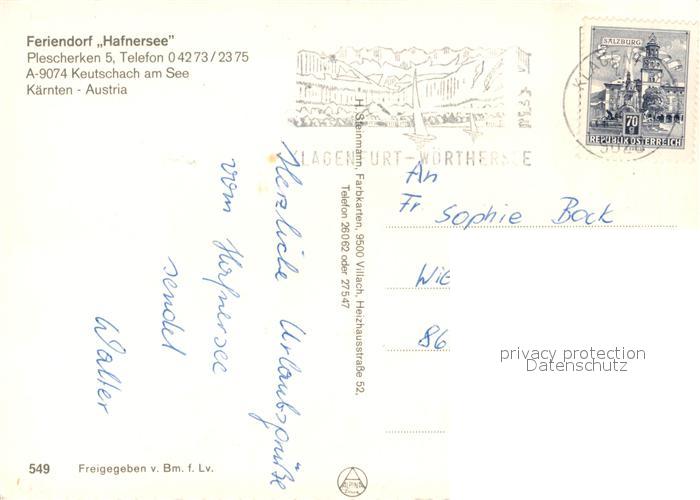 Feriendorf „Hafnersee"
Plescherken 5, Telefon 0 42 73 / 23 75
A-9074 Keutschach am See
Kärnten - Austria
Herzliche Urlaubsgrüße
vom Hafnersee
sendet
Walter
549
Freigegeben v. Bm. f. Lv.
H. Steinmann, Farbkarten, 9500 Villach, Heizhausstraße 52,
Telefon 26062 oder 27547
ALPINA
KLAGENFURT-WÖRTHERSEE
SALZBURG
70
g
REPUBLIK ÖSTERREICH
An
Fr Sophie Bock
Wie
86
privacy protection
Datenschutz